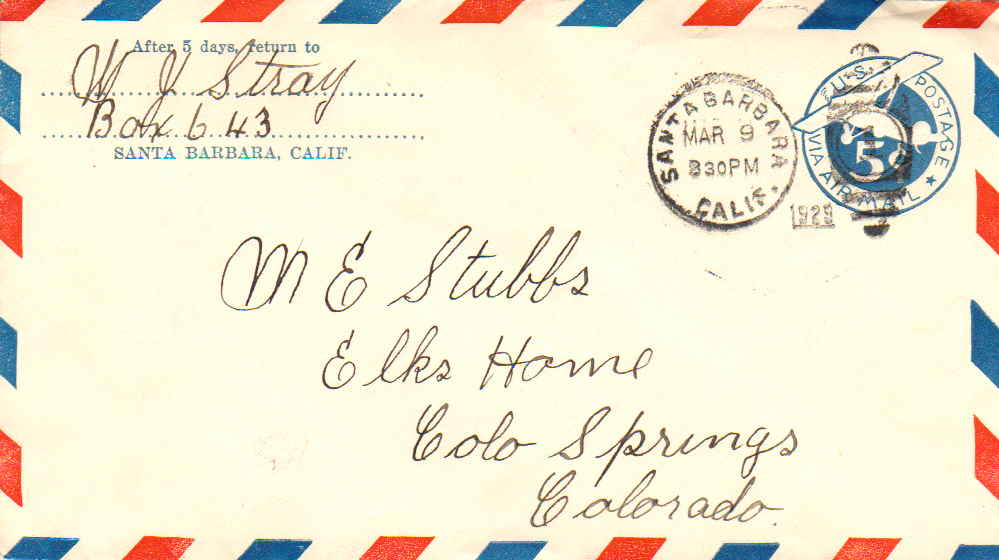 After 5 days, return to
W J Stray
Box 643
SANTA BARBARA, CALIF.
SANTA BARBARA
MAR 9
830PM
CALIF.
1929
U.S. POSTAGE
5c
VIA AIR MAIL
M E Stubbs
Elks Home
Colo Springs
Colorado.